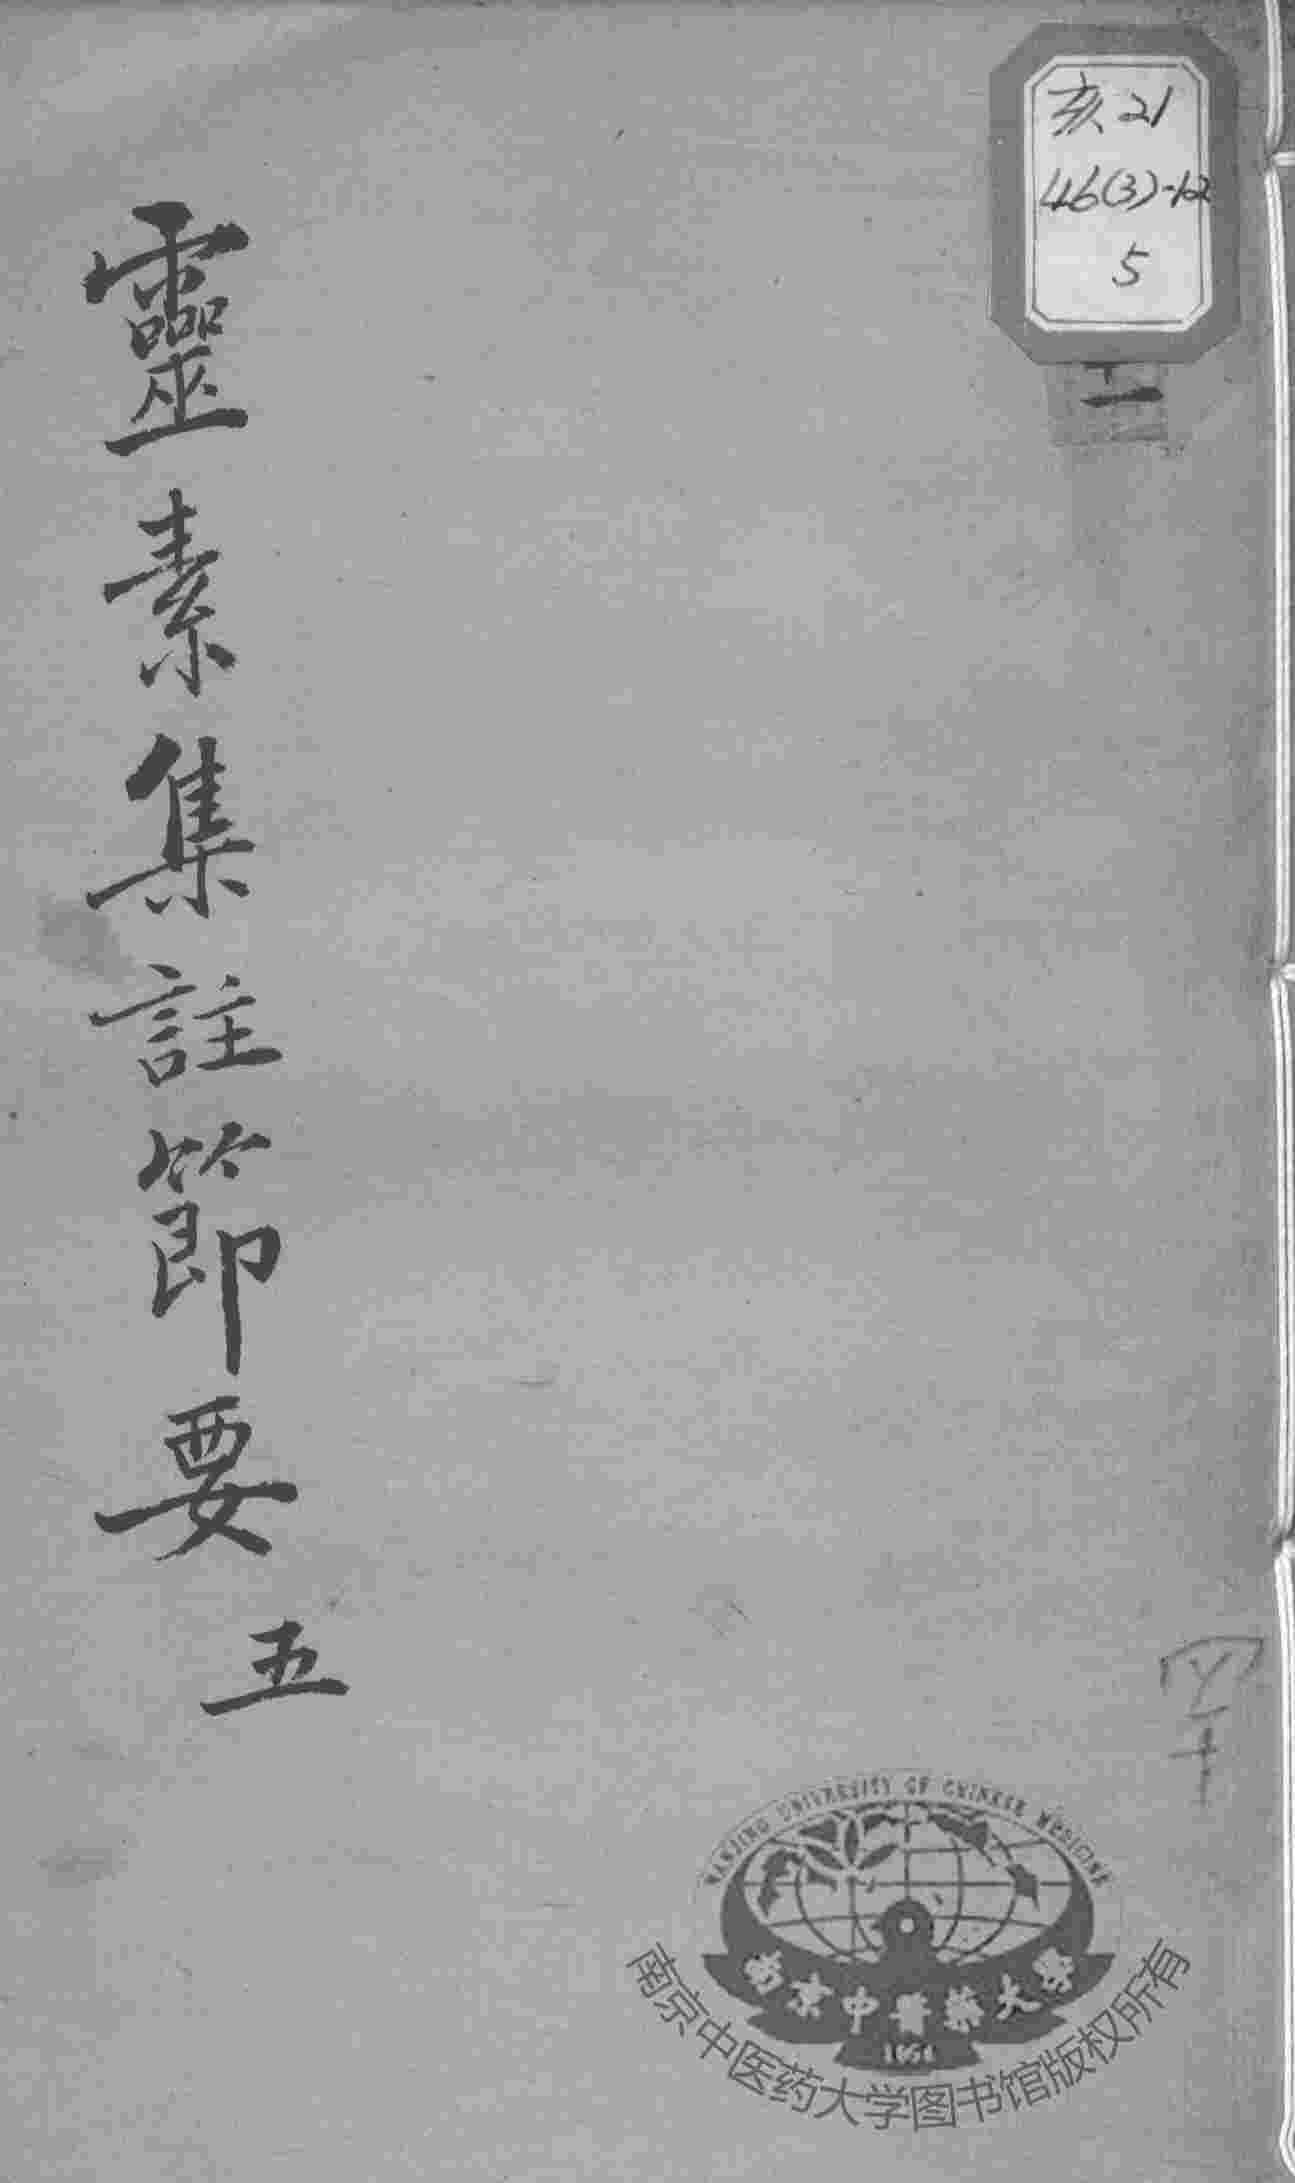 亥21
46(3)-12
5
十一
靈素集註節要
五
四十
NANJING UNIVERSITY OF CHINESE MEDICINE
南京中醫藥大學
1954
南京中医药大学图书馆版权所有